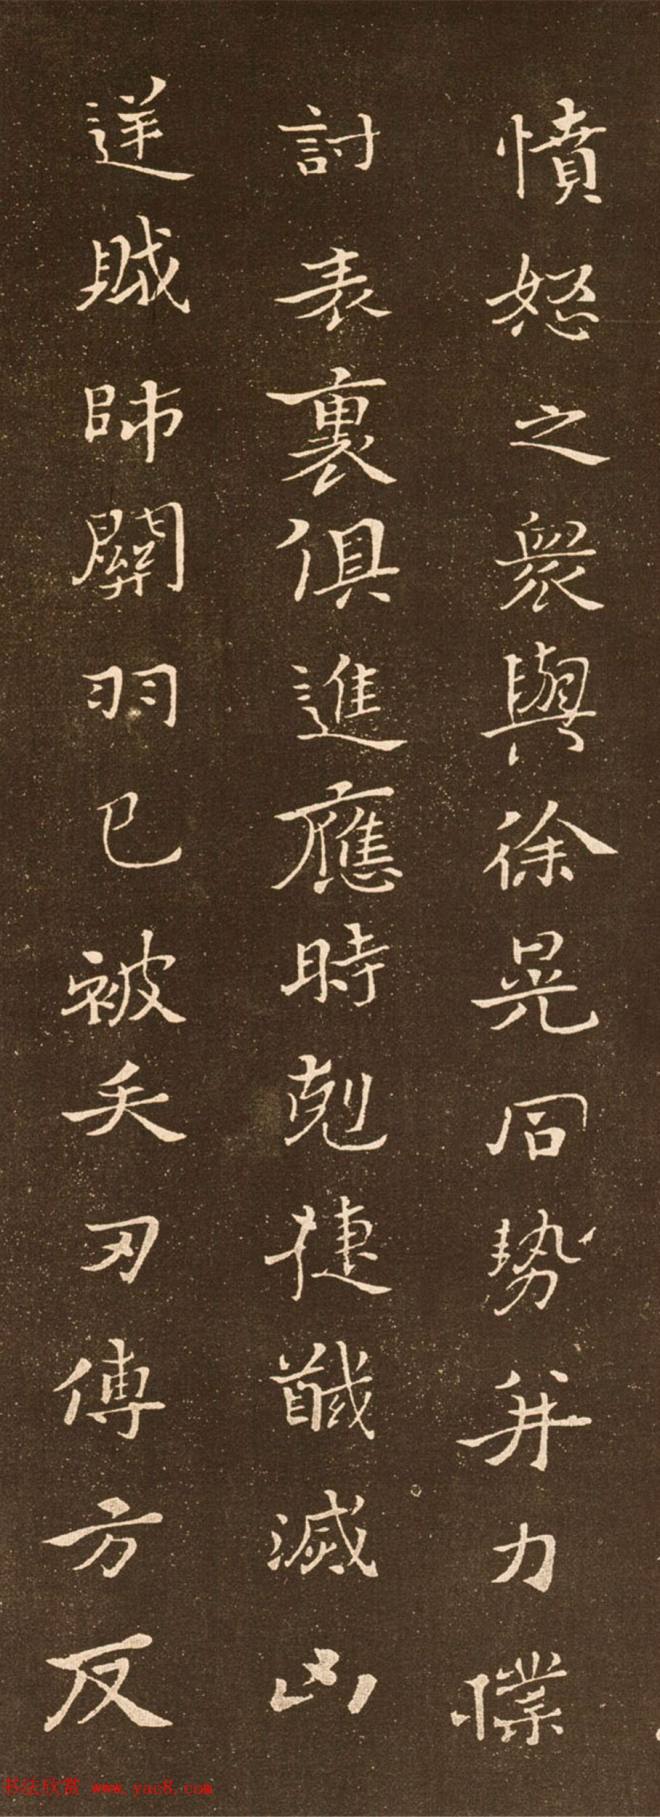 憤怒之衆與徐晃同勢并力撲
討表裏俱進應時剋捷馘滅凶
逆賊帥關羽已被矢刃傅方反
书法欣赏 www.yac8.com